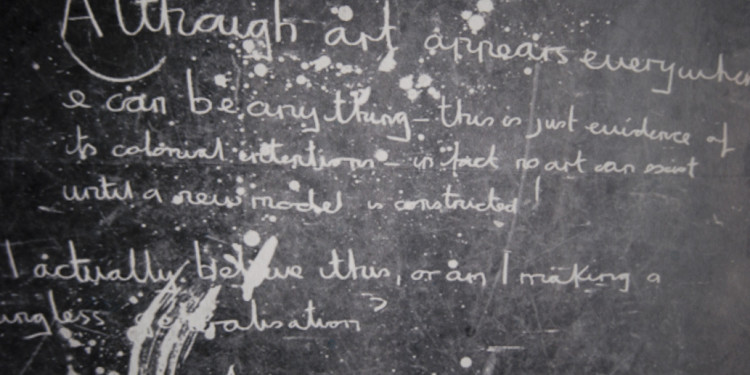 Although art appears everywhe
e can be anything – this is just evidence of
its colonial intentions – in fact no art can exist
until a new model is constructed!
I actually believe this, or am I making a
ingless generalisation?